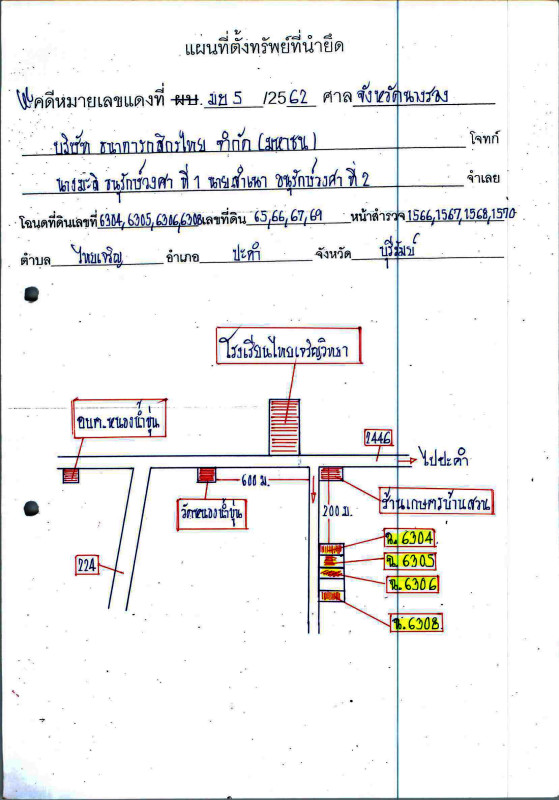 แผนที่ตั้งทรัพย์ที่นำยึด
คดีหมายเลขแดงที่ ผบ. มย 5 /2562 ศาล จังหวัดนางรอง
บริษัท ธนาคารกสิกรไทย จำกัด (มหาชน) โจทก์
นางมะลิ อนุรักษ์วงศา ที่ 1 นายสำเนา อนุรักษ์วงศา ที่ 2 จำเลย
โฉนดที่ดินเลขที่ 6304, 6305, 6306, 6308 เลขที่ดิน 65, 66, 67, 69 หน้าสำรวจ 1566, 1567, 1568, 1570
ตำบล ไทยเจริญ อำเภอ ปะคำ จังหวัด บุรีรัมย์
โรงเรียนไทยเจริญวิทยา
อบต.หนองน้ำขุ่น
2446
ไปปะคำ
600 ม.
วัดหนองน้ำขุ่น
ร้านเกษตรบ้านสวน
200 ม.
224
ฉ. 6304
ฉ. 6305
ฉ. 6306
ฉ. 6308